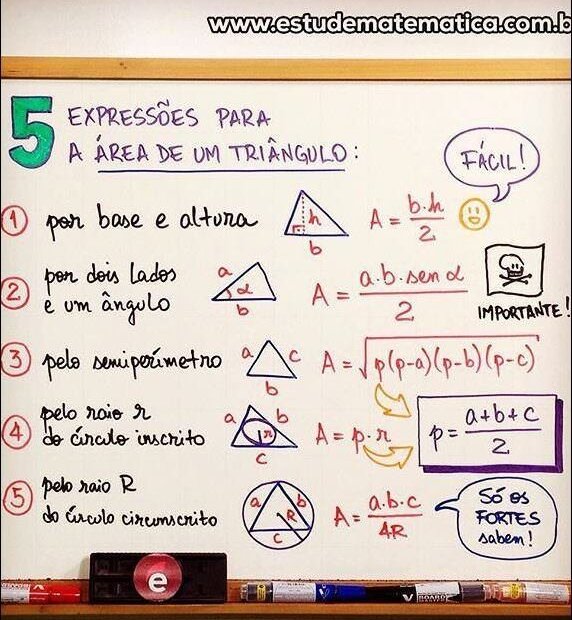 www.estudematematica.com.b
5 EXPRESSÕES PARA
A ÁREA DE UM TRIÂNGULO:
FÁCIL!
1 por base e altura h b A = b.h/2
2 por dois lados
e um ângulo a α b A = a.b.sen α/2
IMPORTANTE!
3 pelo semiperímetro a c b A = √p(p-a)(p-b)(p-c)
4 pelo raio r
do círculo inscrito a b r c A = p.r
p = a+b+c/2
5 pelo raio R
do círculo circunscrito a b R c A = a.b.c/4R
Só os
FORTES
sabem!
e
V BOARD